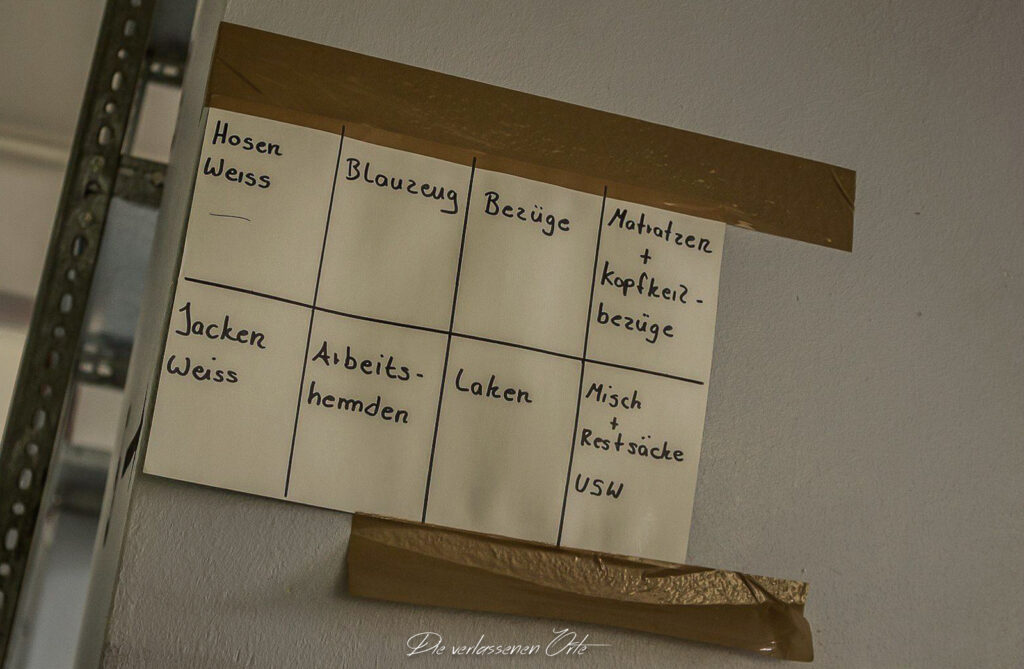 Hosen
Weiss
Blauzeug
Bezüge
Matratzen
+
Kopfkeil-
bezüge
Jacken
Weiss
Arbeits-
hemden
Laken
Misch
+
Restsäcke
USW
Die verlassenen Orte